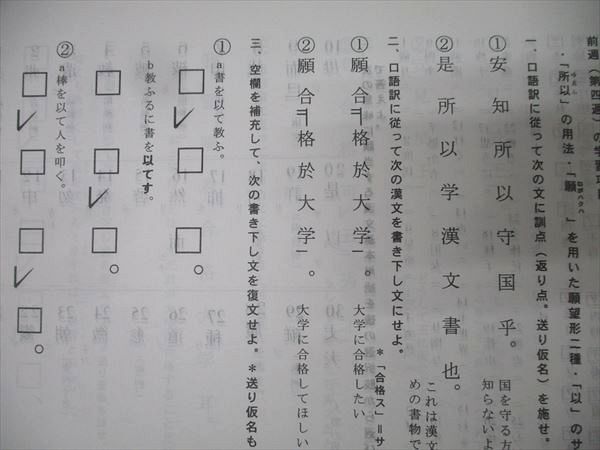 前週（第四週）の学習項
・「所以」の用法・「願　」を用いた願望形二種・「以」のサ
一、口語訳に従って次の文に訓点（返り点。送り仮名）を施せ。
① 安知所以守国乎。
国を守る方
知らないよ
② 是所以学漢文書也。
これは漢文
めの書物で
二、口語訳に従って次の漢文を書き下し文にせよ。
＊「合格ス」＝サ
① 願合格於大学。 大学に合格したい
② 願合格於大学。 大学に合格してほしい
三、空欄を補充して、次の書き下し文を復文せよ。＊送り仮名も
① a 書を以て教ふ。
□□□。
b 教ふるに書を以てす。
□□□。
② a 棒を以て人を叩く。
□□□□。